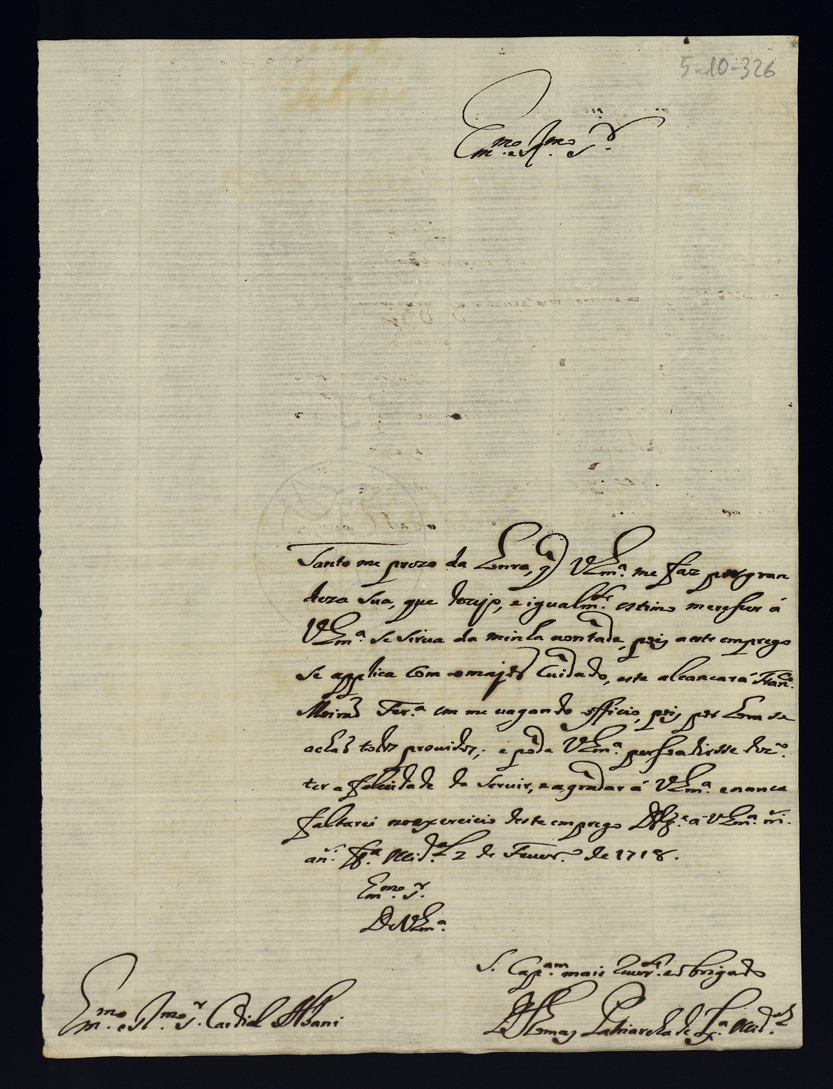 5-10-326
Em.mo e R.mo S.r
Tanto me prezo da honra, q̃ V Em.a me faz por gran
deza sua, que dezejo, e igualm.te estimo merecer á
V Em.a se sirva da minha vontade, pois a este emprego
se applica com o mayor cuidado, este alcancará Fran.co
Moira Fer.a em me vagando officio, pois por hora se
achaõ todos providos; e póde V Em.a persuadirse dez.o
ter a felicidade de servir, e agradar á V Em.a e nunca
faltarei no exercicio deste emprego D.s g.e a V Em.a m.s
an.s Lx.a Occid.al 2 de Fever.o de 1718.
Em.mo S.r
De V Em.a
S. Cap.am mais Vener.or e obrigado
Em.mo e R.mo S.r Cardial Albani
Thomaz Patriarcha de Lx.a Occid.al